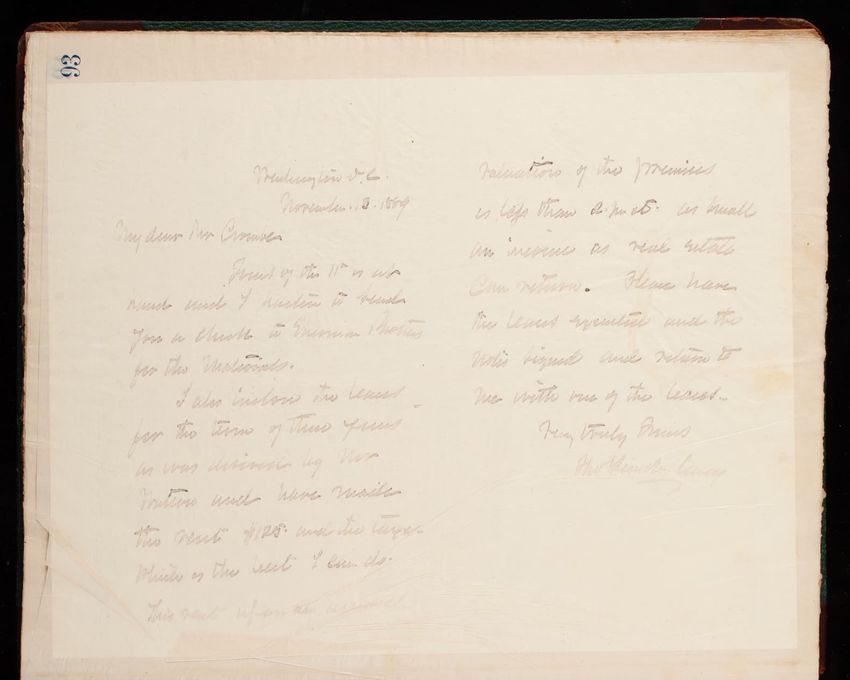 93
Washington D.C.
November 13. 1889
My dear Mr
Yours of the 11th is at
hand and I hasten to send
you a check to
for the Materials.
I also inclose the leases
for the term of three years
as was desired by Mr
and have made
the rent $125. and the taxes
which is the best I can do.
This rent upon an assessed
valuation of the premises
is less than as small
an income as real estate
can return. Please have
the leases executed and the
notes signed and return to
me with one of the leases.
Very truly Yours
Thos Lincoln Casey